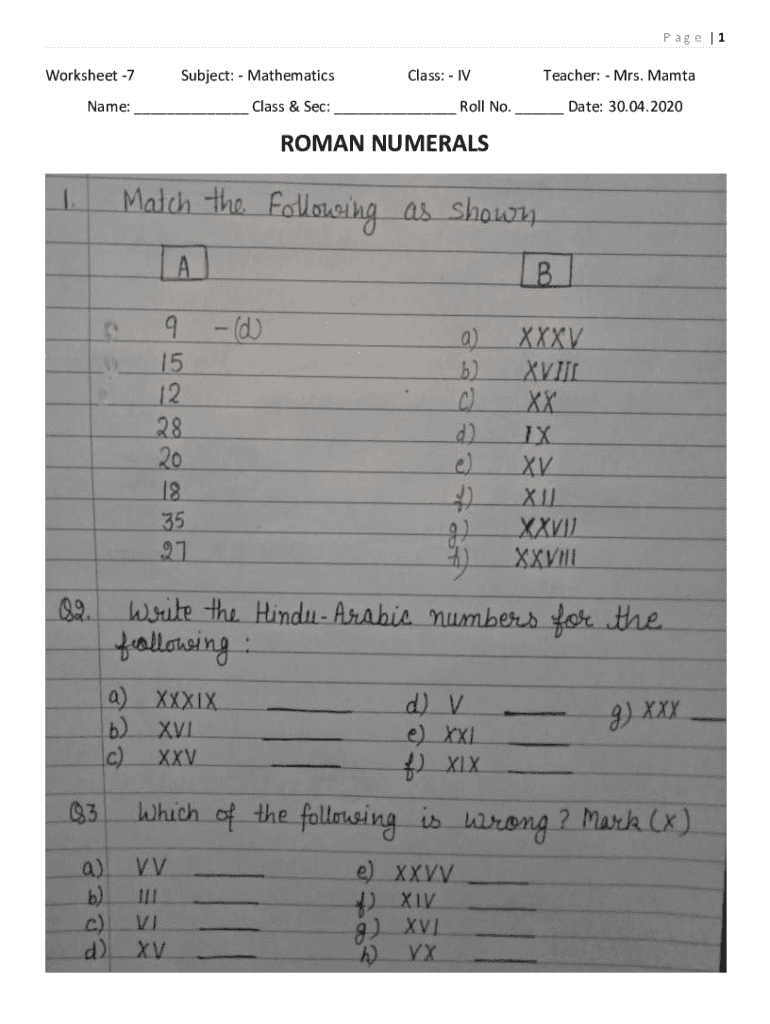 Page | 1
Worksheet -7 Subject: - Mathematics Class: - IV Teacher: - Mrs. Mamta
Name: ______________ Class & Sec: _______________ Roll No. ______ Date: 30.04.2020
ROMAN NUMERALS
1. Match the Following as shown
A B
9 -(d) a) XXXV
15 b) XVIII
12 c) XX
28 d) IX
20 e) XV
18 f) XII
35 g) XXVII
27 h) XXVIII
Q2. Write the Hindu-Arabic numbers for the
following :
a) XXXIX ______ d) V ______ g) XXX ___
b) XVI ______ e) XXI ______
c) XXV ______ f) XIX ______
Q3 Which of the following is wrong? Mark (X)
a) VV ______ e) XXVV ______
b) III ______ f) XIV ______
c) VI ______ g) XVI ______
d) XV ______ h) VX ______